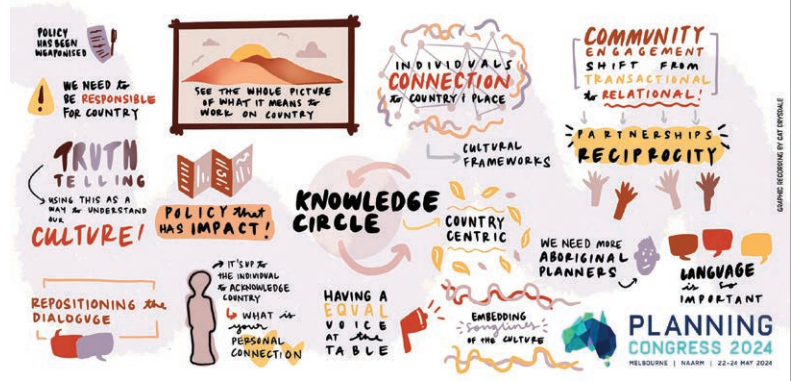 POLICY
HAS BEEN
WEAPONISED
WE NEED to
BE RESPONSIBLE
FOR COUNTRY
TRUTH
TELLING
USING THIS AS A
WAY to UNDERSTAND
OUR
CULTURE!
REPOSITIONING the
DIALOGUGE
SEE THE WHOLE PICTURE
OF WHAT IT MEANS to
WORK ON COUNTRY
POLICY that
HAS IMPACT!
IT'S UP to
THE INDIVIDUAL
to ACKNOWLEDGE
COUNTRY
WHAT is
your
PERSONAL
CONNECTION
KNOWLEDGE
CIRCLE
HAVING A
EQUAL
VOICE
AT the
TABLE
INDIVIDUALS
CONNECTION
to COUNTRY & PLACE
CULTURAL
FRAMEWORKS
COUNTRY
CENTRIC
EMBEDDING
Songlines
OF the CULTURE
COMMUNITY
ENGAGEMENT
SHIFT FROM
TRANSACTIONAL
to RELATIONAL!
PARTNERSHIPS
RECIPROCITY
WE NEED MORE
ABORIGINAL
PLANNERS
LANGUAGE
is so
IMPORTANT
PLANNING
CONGRESS 2024
MELBOURNE | NAARM | 22-24 MAY 2024
GRAPHIC RECORDING BY CAT DRYSDALE